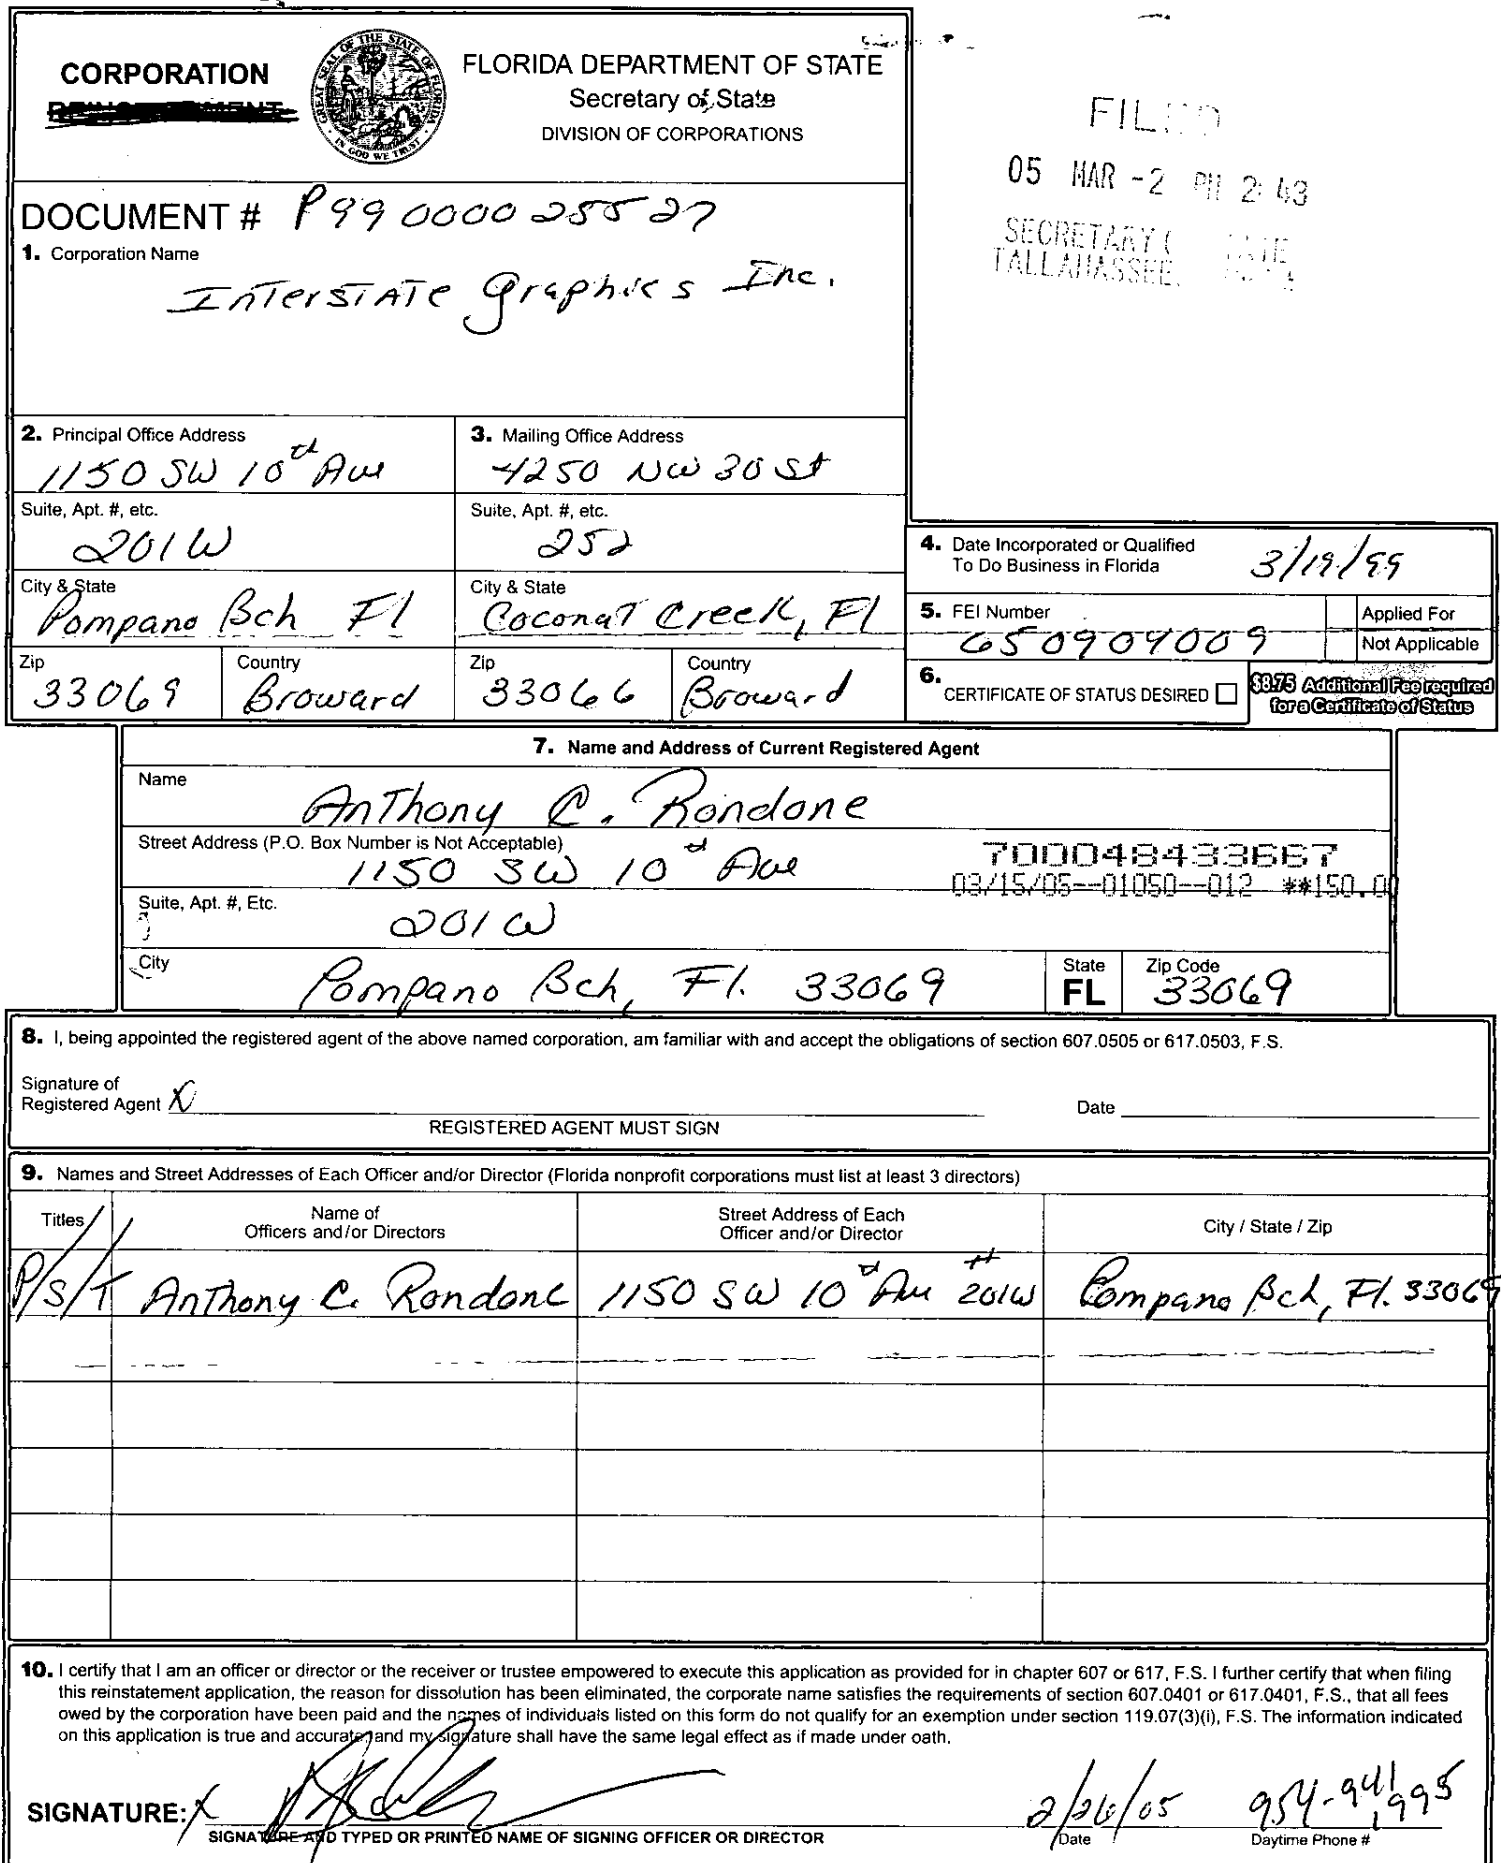 CORPORATION
FLORIDA DEPARTMENT OF STATE
Secretary of State
DIVISION OF CORPORATIONS
GREAT SEAL OF THE STATE OF FLORIDA
IN GOD WE TRUST
05 MAR -2 PM 2:43
SECRETARY
TALLAHASSEE,
DOCUMENT # P99000025527
1. Corporation Name
Interstate Graphics Inc.
2. Principal Office Address
1150 SW 10th Ave
3. Mailing Office Address
4250 NW 30 St
Suite, Apt. #, etc.
201W
Suite, Apt. #, etc.
252
City & State
Pompano Bch Fl
City & State
Coconut Creek, Fl
Zip
33069
Country
Broward
Zip
33066
Country
Broward
4. Date Incorporated or Qualified
To Do Business in Florida
3/19/99
5. FEI Number
650904009
Applied For
Not Applicable
6. CERTIFICATE OF STATUS DESIRED
$8.75 Additional Fee required
for a Certificate of Status
7. Name and Address of Current Registered Agent
Name
Anthony C. Rondone
Street Address (P.O. Box Number is Not Acceptable)
1150 SW 10th Ave
700048433667
03/15/05--01050--012 **150.00
Suite, Apt. #, Etc.
201W
City
Pompano Bch, Fl. 33069
State
FL
Zip Code
33069
8. I, being appointed the registered agent of the above named corporation, am familiar with and accept the obligations of section 607.0505 or 617.0503, F.S.
Signature of
Registered Agent X
Date
REGISTERED AGENT MUST SIGN
9. Names and Street Addresses of Each Officer and/or Director (Florida nonprofit corporations must list at least 3 directors)
Titles
Name of
Officers and/or Directors
Street Address of Each
Officer and/or Director
City / State / Zip
P/S/T Anthony C. Rondone 1150 SW 10th Ave # 201W Pompano Bch, Fl. 33069
10. I certify that I am an officer or director or the receiver or trustee empowered to execute this application as provided for in chapter 607 or 617, F.S. I further certify that when filing
this reinstatement application, the reason for dissolution has been eliminated, the corporate name satisfies the requirements of section 607.0401 or 617.0401, F.S., that all fees
owed by the corporation have been paid and the names of individuals listed on this form do not qualify for an exemption under section 119.07(3)(i), F.S. The information indicated
on this application is true and accurate, and my signature shall have the same legal effect as if made under oath.
SIGNATURE: X
2/26/05
954-941 1995
SIGNATURE AND TYPED OR PRINTED NAME OF SIGNING OFFICER OR DIRECTOR
Date
Daytime Phone #